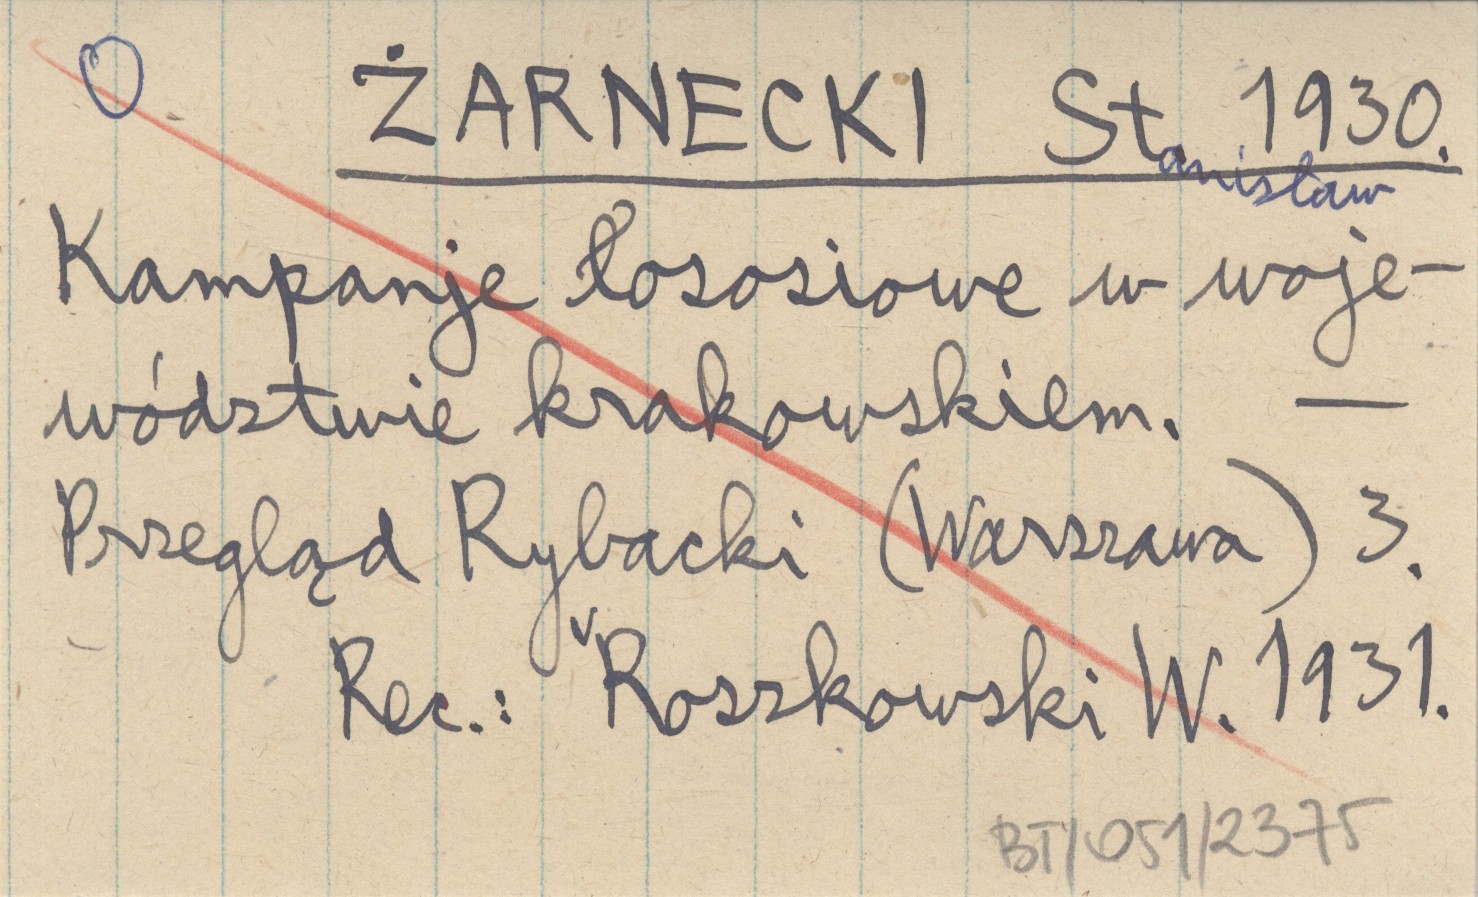 ŻARNECKI St. 1930.
anisław
Kampanje łososiowe w woje-
wództwie krakowskiem. —
Przegląd Rybacki (Warszawa) 3.
Rec.: Roszkowski W. 1931.
BT/051/2375